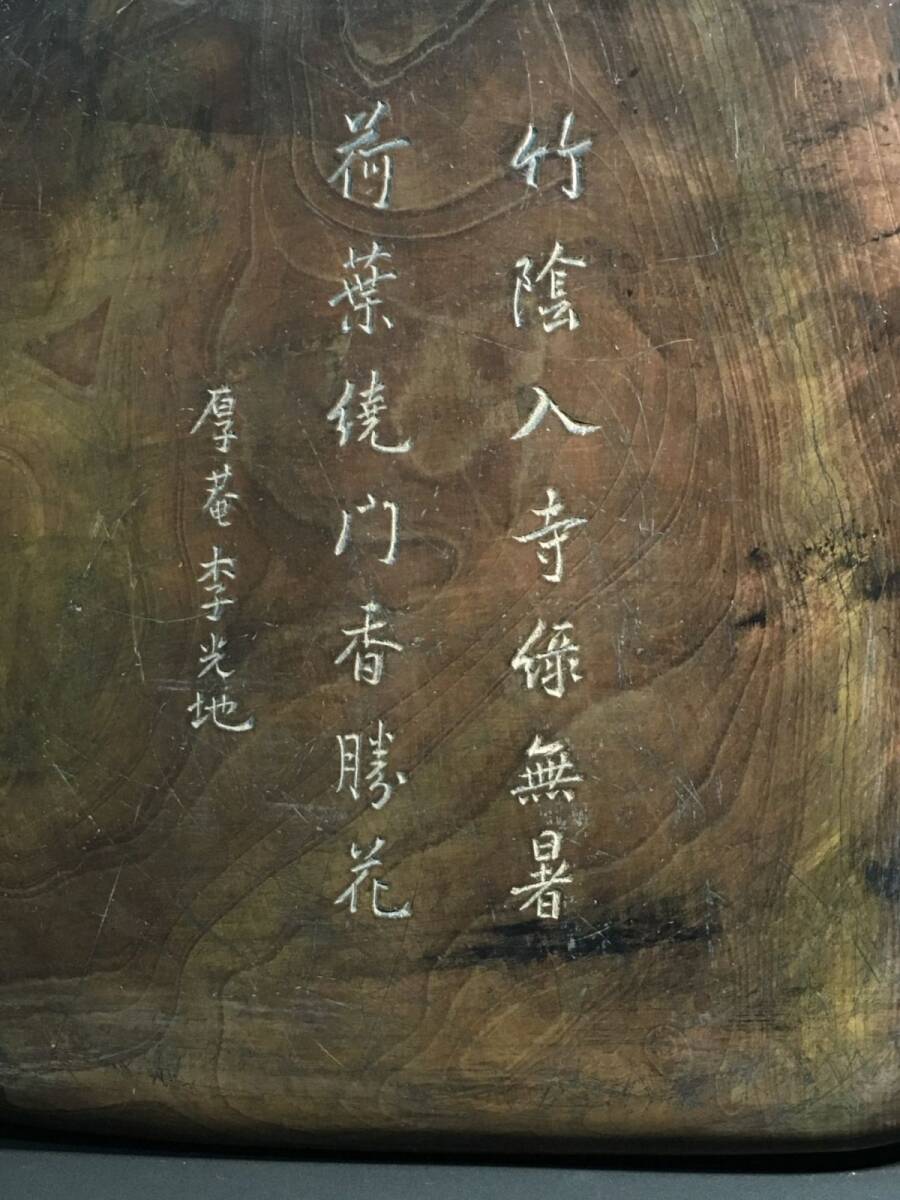 竹陰入寺綠無暑
荷葉繞門香勝花
厚菴李光地